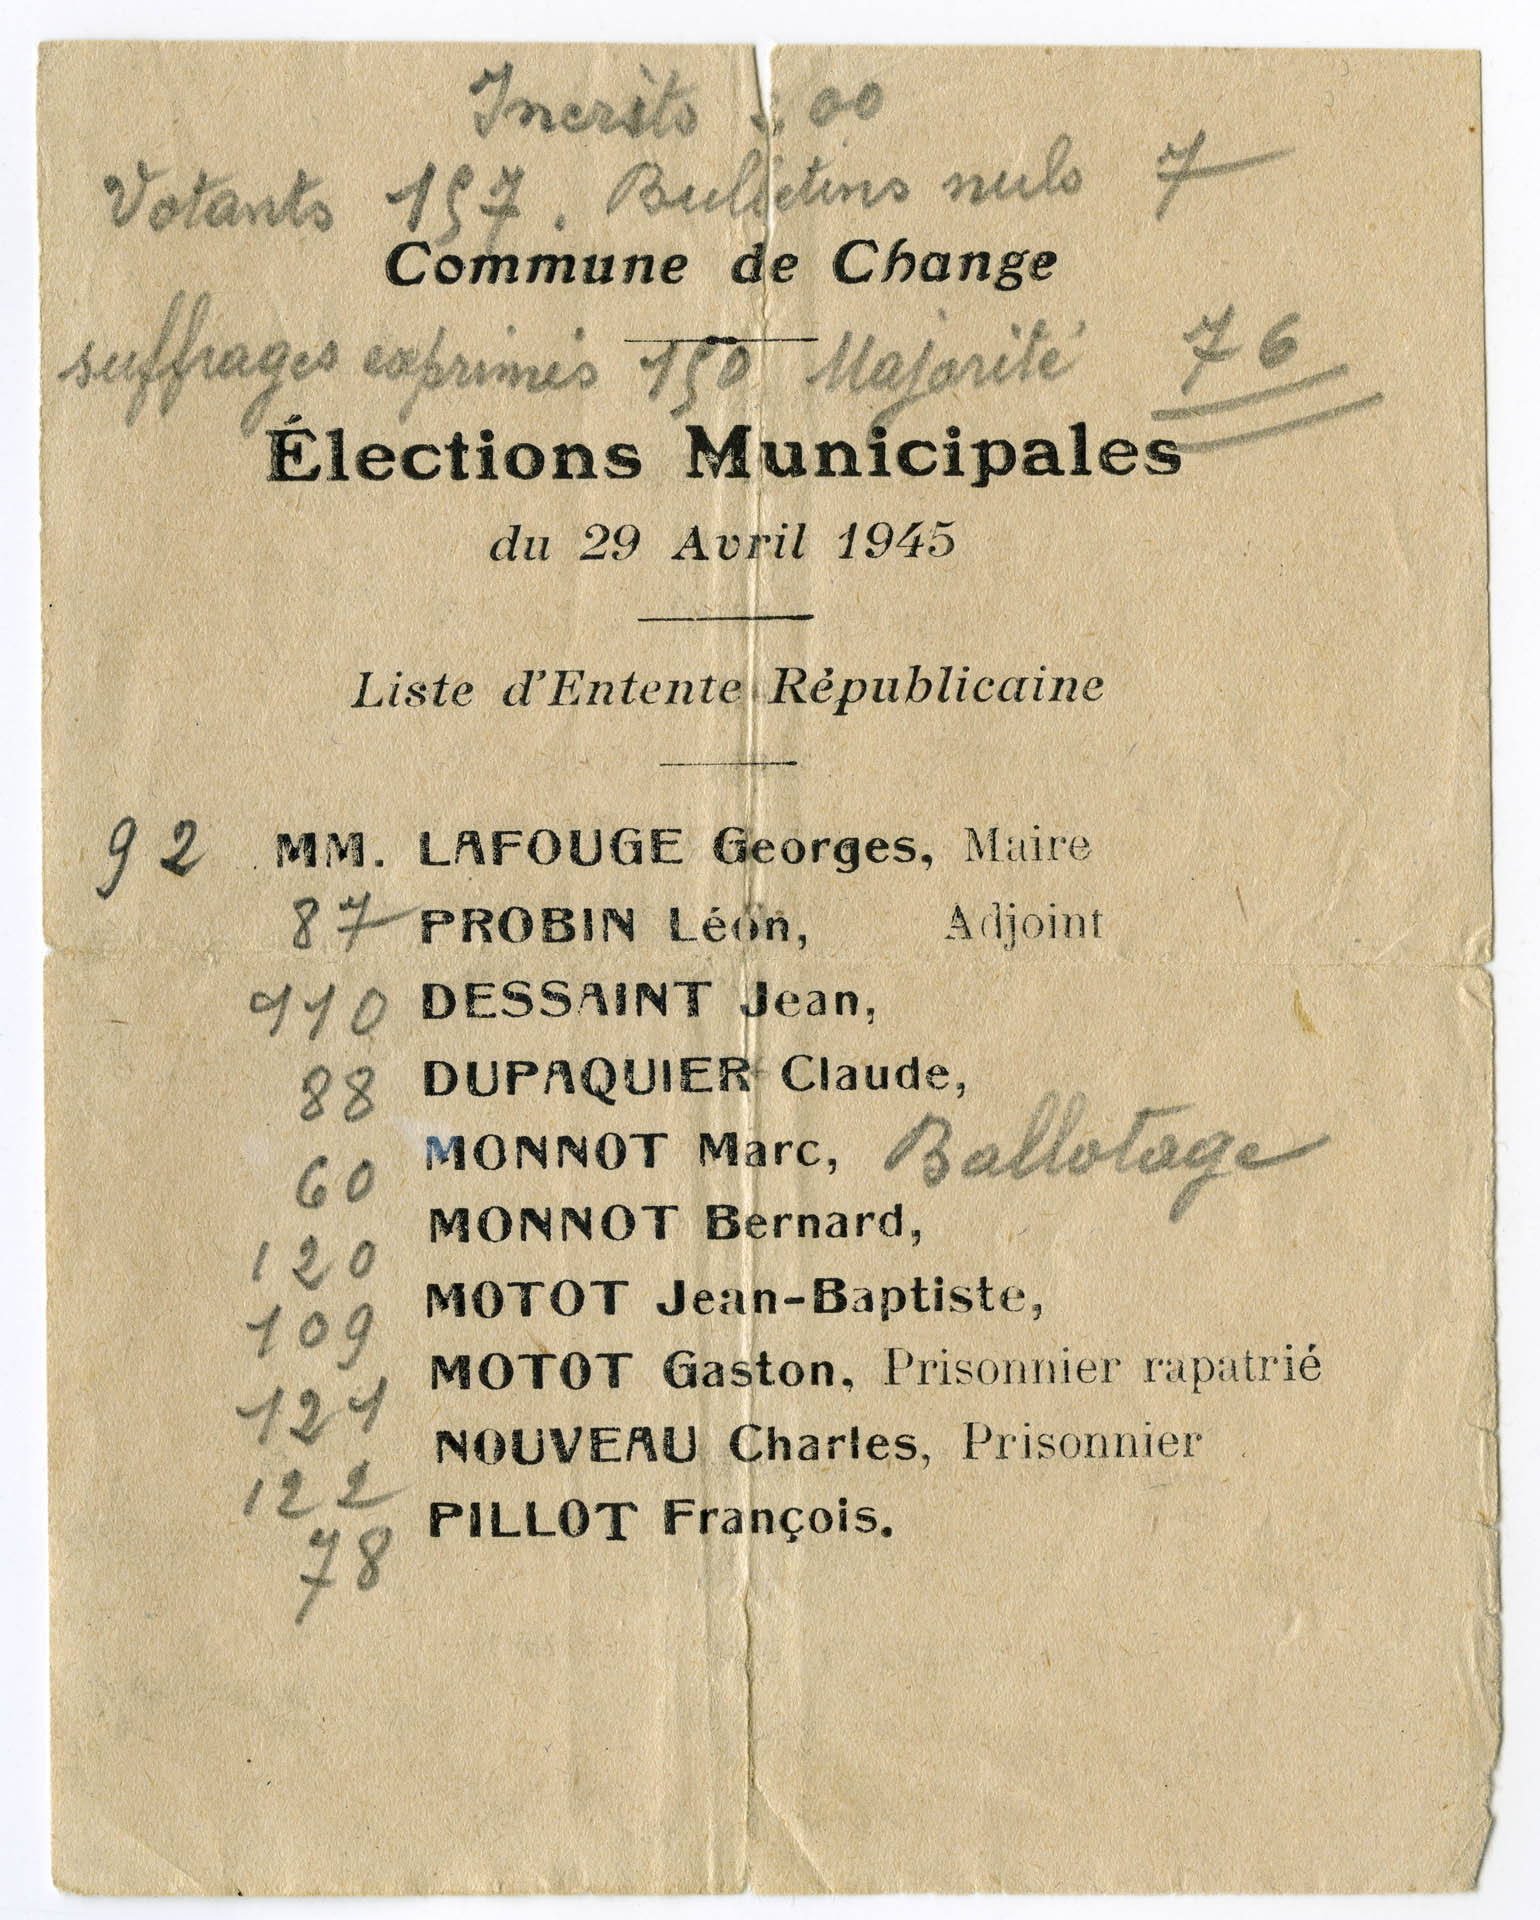 Incrits 200
Votants 157. Bulletins nuls 7
Commune de Change
suffrages exprimés 150 Majorité 76
Élections Municipales
du 29 Avril 1945
Liste d'Entente Républicaine
92 MM. LAFOUGE Georges, Maire
87 PROBIN Léon, Adjoint
110 DESSAINT Jean,
88 DUPAQUIER Claude,
60 MONNOT Marc, Ballotage
120 MONNOT Bernard,
109 MOTOT Jean-Baptiste,
121 MOTOT Gaston, Prisonnier rapatrié
122 NOUVEAU Charles, Prisonnier
78 PILLOT François.